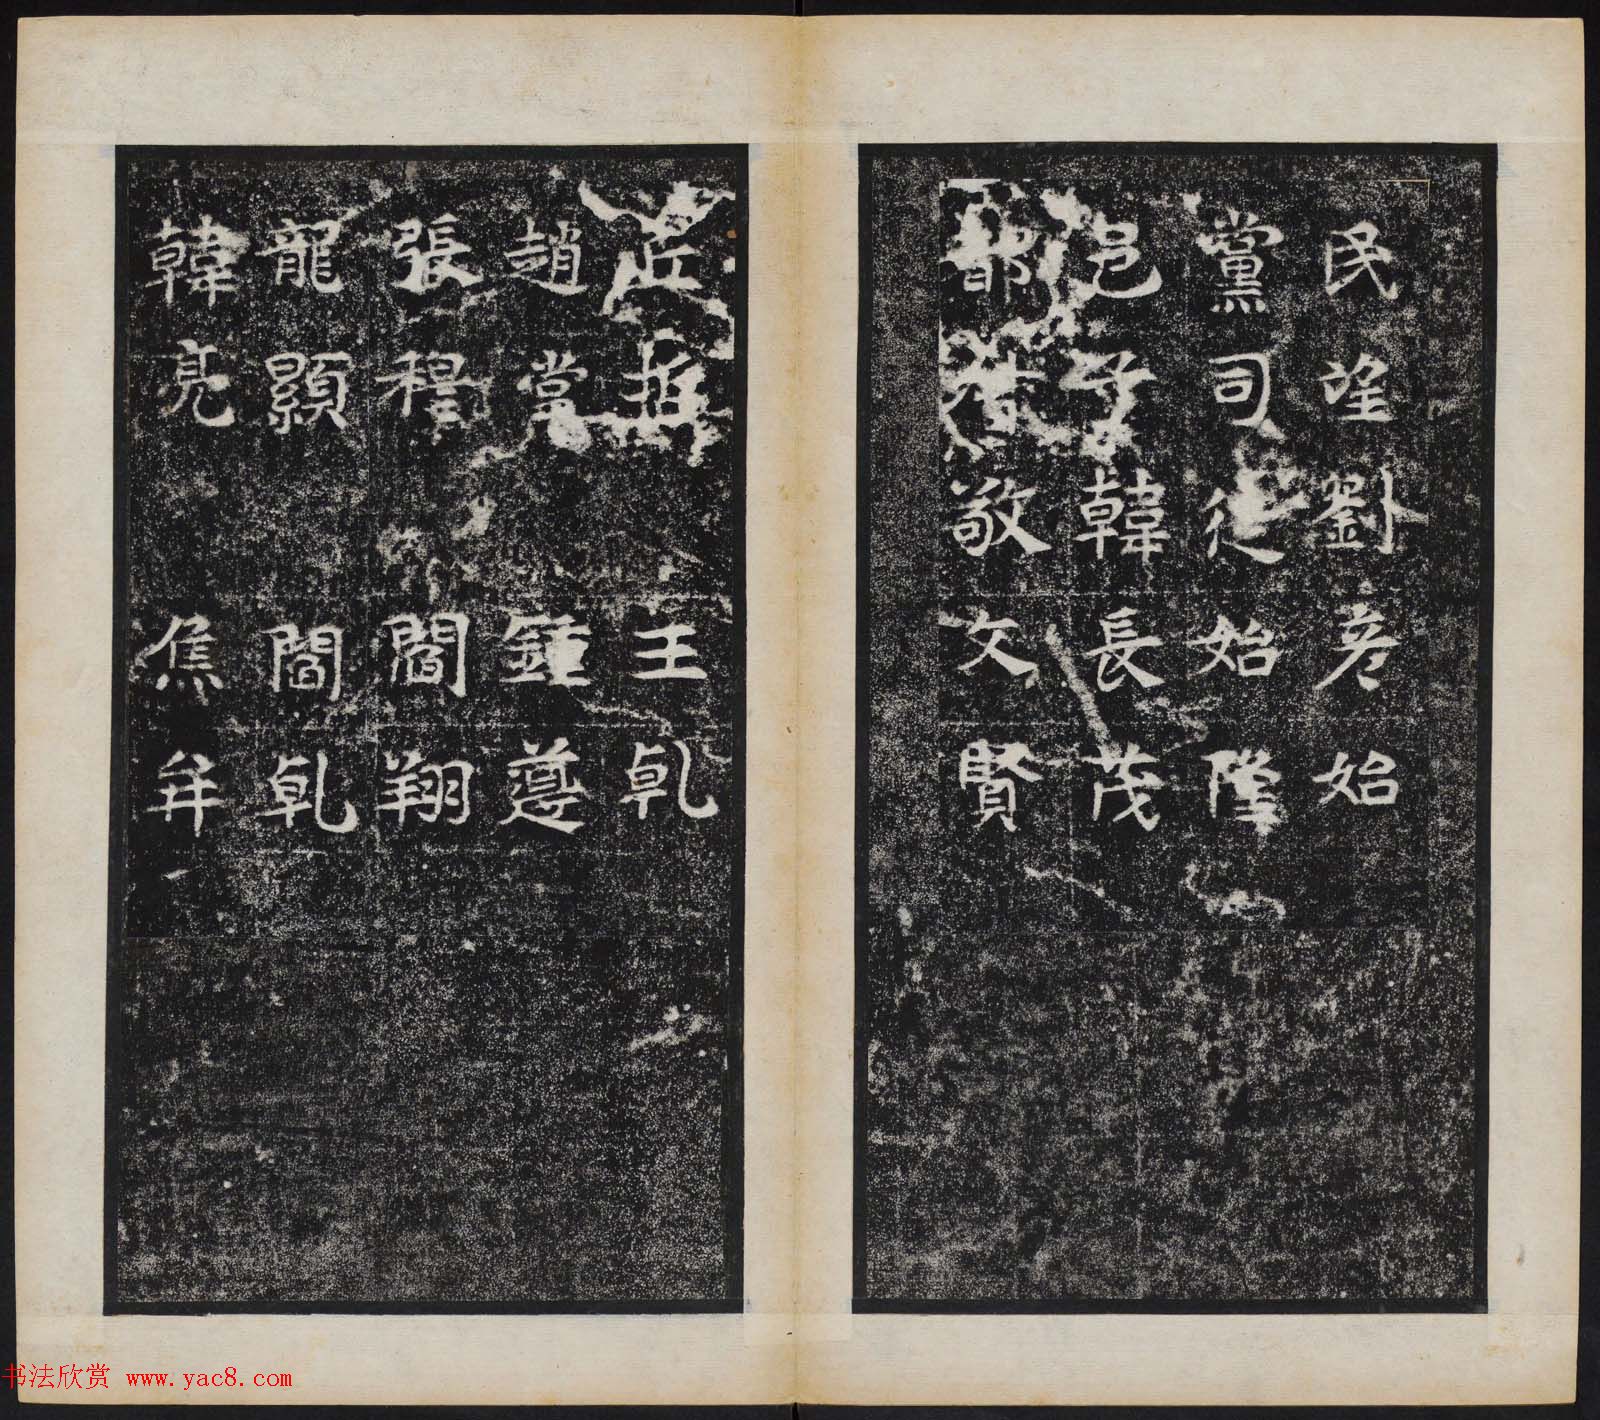 民望劉彦始
黨司徒始隆
邑子韓長茂
都督敬文賢
王乹
趙當 鍾遵
張穆 閻翔
龍顯 閻乹
韓亮 焦弁
书法欣赏 www.yac8.com